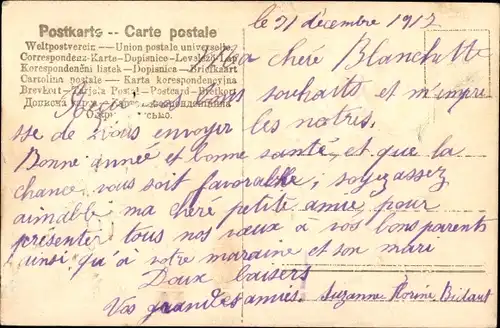 Postkarte -- Carte postale
Weltpostverein — Union postale universelle
Correspondenz-Karte - Dopisnice - Levelező-Lap
Korespondenční listek - Dopisnica - Briefkaart
Cartolina postale — Karta korespondencyjna
Brevkort - Tarjeta Postal - Postcard - Brefkort
le 21 décembre 1912
Ma chère Blanchette
vos souhaits et m'empre
sse de vous envoyer les notres,
Bonne année et bonne santé, et que la
chance vous soit favorable, soyez assez
aimable ma chère petite amie, pour
présenter tous nos vœux à vos bons parents
ainsi qu'à votre marraine et son mari
Doux baisers
Vos grandes amies. Suzanne Florine Bidaut